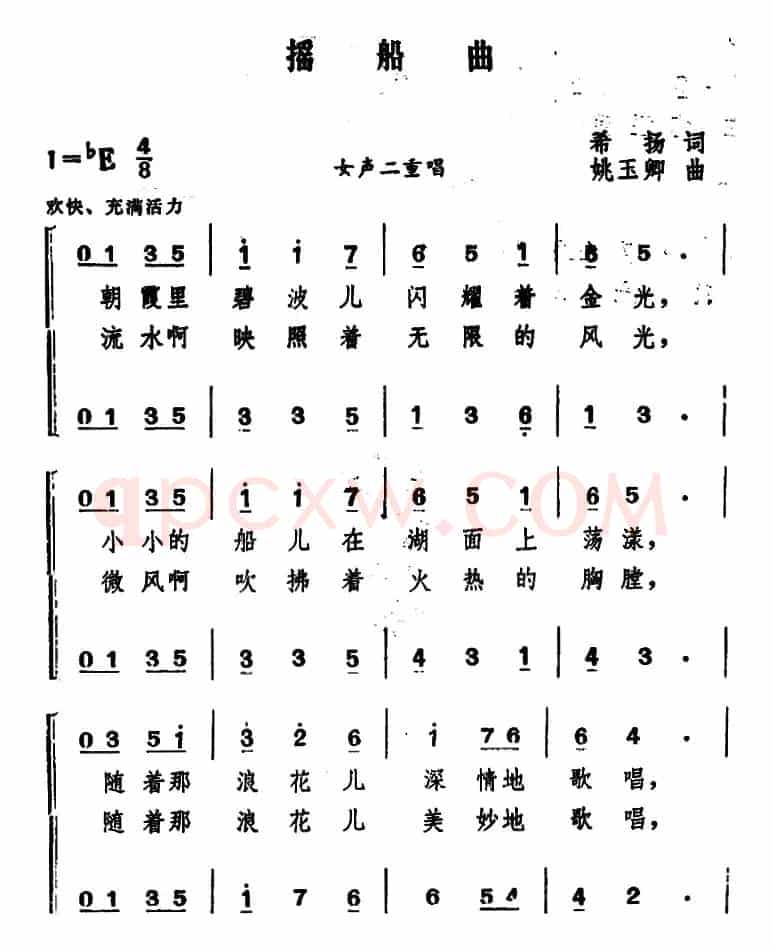 摇船曲
希扬 词
1=♭E 4/8 女声二重唱 姚玉卿 曲
欢快、充满活力
0 1 3 5 | 1 i 7 | 6 5 1 | 6 5 .
朝霞里 碧波儿 闪耀着 金光，
流水啊 映照着 无限的 风光，
0 1 3 5 | 3 3 5 | 1 3 6̣ | 1 3 .
0 1 3 5 | 1 i 7 | 6 5 1 | 6 5 .
qpcxw.COM
小小的 船儿在 湖面上 荡漾，
微风啊 吹拂着 火热的 胸膛，
0 1 3 5 | 3 3 5 | 4 3 1 | 4 3 .
0 3 5 i | 3̇ 2̇ 6 | i 7 6 | 6 4 .
随着那 浪花儿 深情地 歌唱，
随着那 浪花儿 美妙地 歌唱，
0 1 3 5 | 1 7 6 | 6 5 4 | 4 2 .